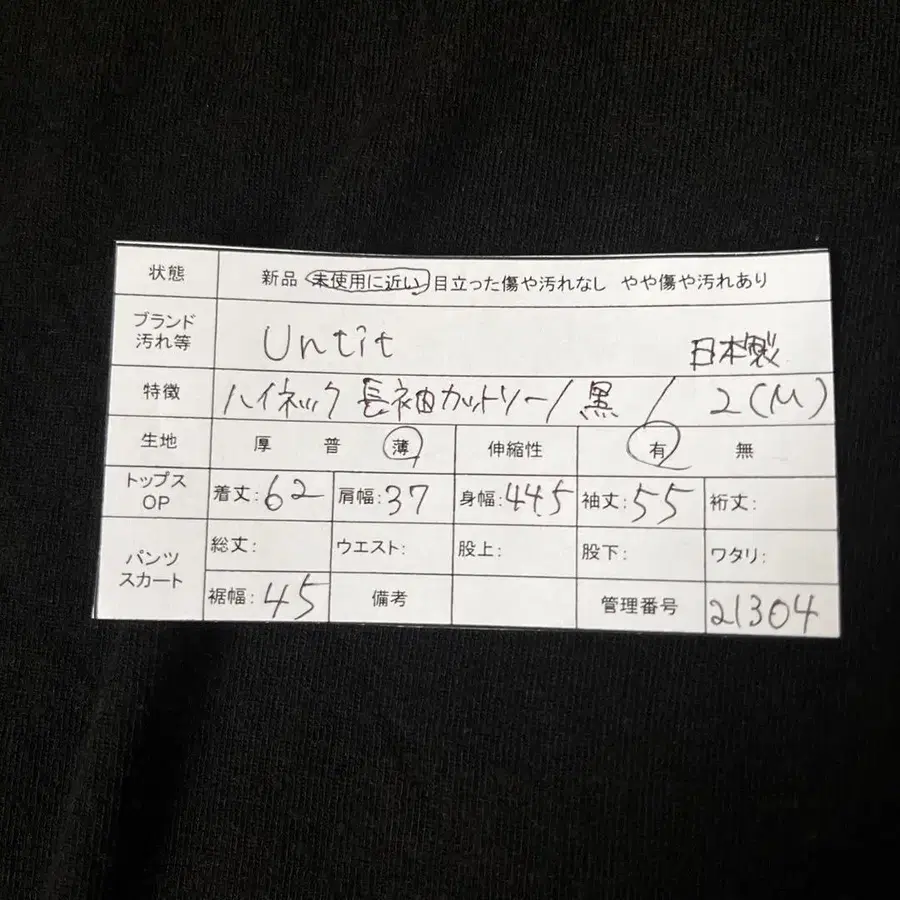 状態 新品 未使用に近い 目立った傷や汚れなし やや傷や汚れあり
ブランド 汚れ等 Untit 日本製
特徴 ハイネック 長袖カットソー/黒/2(M)
生地 厚 普 薄 伸縮性 有 無
トップス OP 着丈:62 肩幅:37 身幅:44.5 袖丈:55 裄丈:
パンツ スカート 総丈: ウエスト: 股上: 股下: ワタリ:
裾幅:45 備考 管理番号 21304